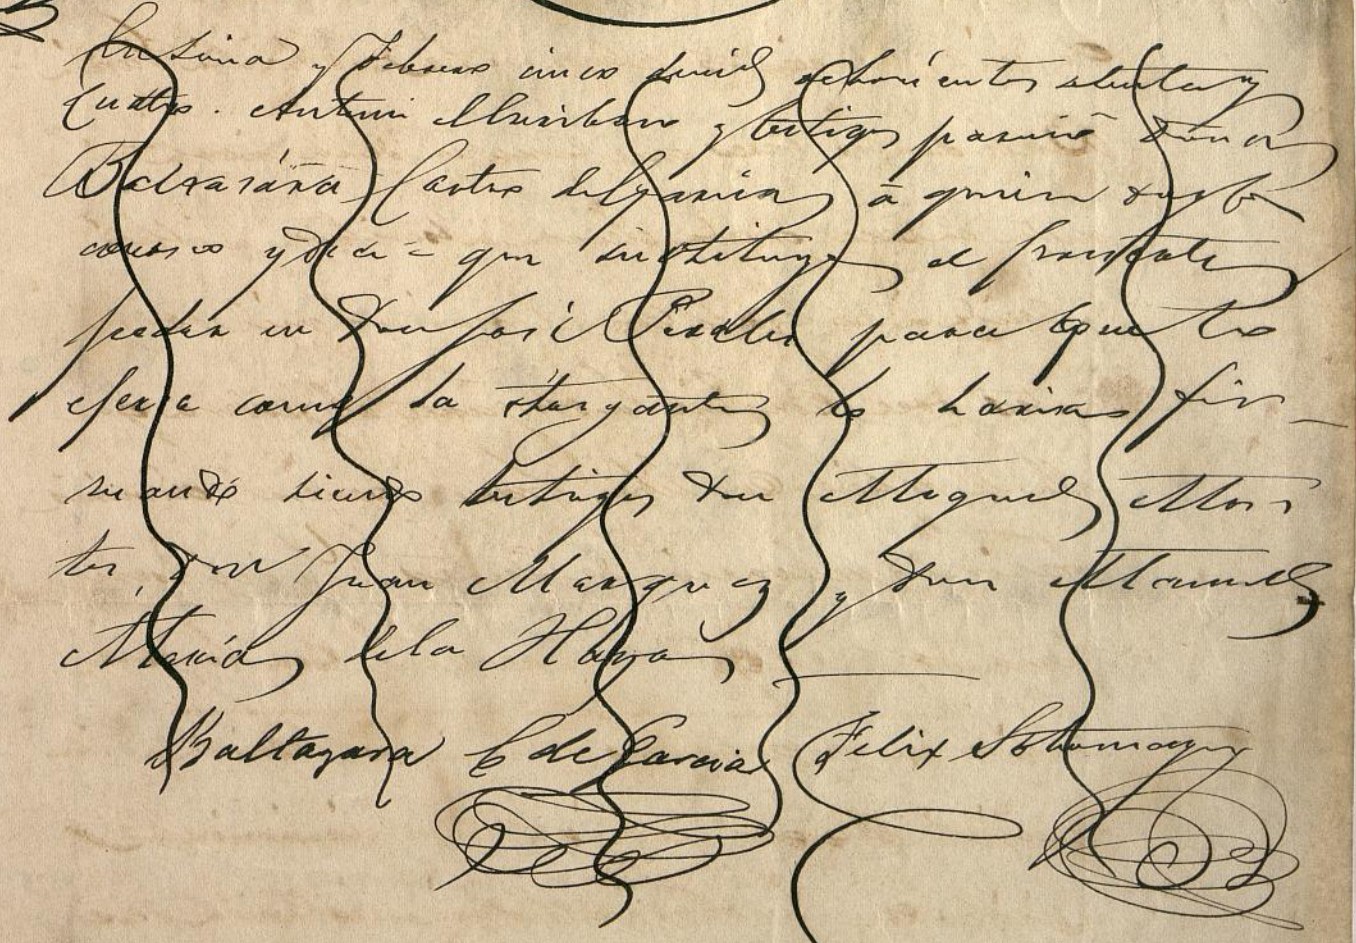 En Lima y Febrero cinco de mil ochocientos setenta y
cuatro. Ante mi el Escribano y testigos pareció Doña
Baltasára Castro de García, á quien doy fe
conosco y dice = que sustituye el presente
poder en Don José Perales para que lo
ejersa como la otorgante lo haria: fir_
mando siendo testigos don Miguel Mon
tes, don Juan Marquez y don Manuel
María de la Haza
Baltazara C de Garcia Felix Sotomayor